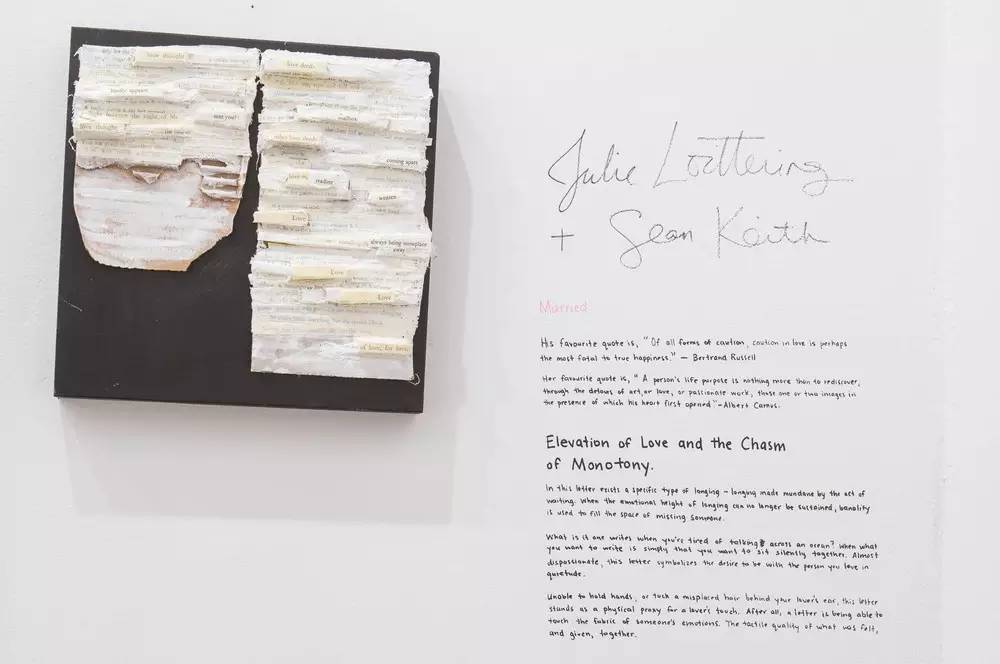 love deeds
kindly appears
mailbox
sent you?
other love deeds
coming apart
reading
written
Love
always being someplace
away
Love
Love
of love, for love,
Julie Loittering
+ Sean Keith
Married
His favourite quote is, "Of all forms of caution, caution in love is perhaps
the most fatal to true happiness." — Bertrand Russell
Her favourite quote is, "A person's life purpose is nothing more than to rediscover,
through the detours of art, or love, or passionate work, those one or two images in
the presence of which his heart first opened" -Albert Camus.
Elevation of Love and the Chasm
of Monotony.
In this letter exists a specific type of longing - longing made mundane by the act of
waiting. When the emotional height of longing can no longer be sustained, banality
is used to fill the space of missing someone.
What is it one writes when you're tired of talking across an ocean? When what
you want to write is simply that you want to sit silently together. Almost
dispassionate, this letter symbolizes the desire to be with the person you love in
quietude.
Unable to hold hands, or tuck a misplaced hair behind your lover's ear, this letter
stands as a physical proxy for a lover's touch. After all, a letter is being able to
touch the fabric of someone's emotions. The tactile quality of what was felt,
and given, together.